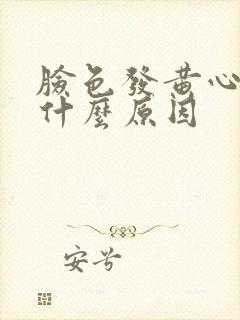 臉色發黃心
什麼原因
安兮